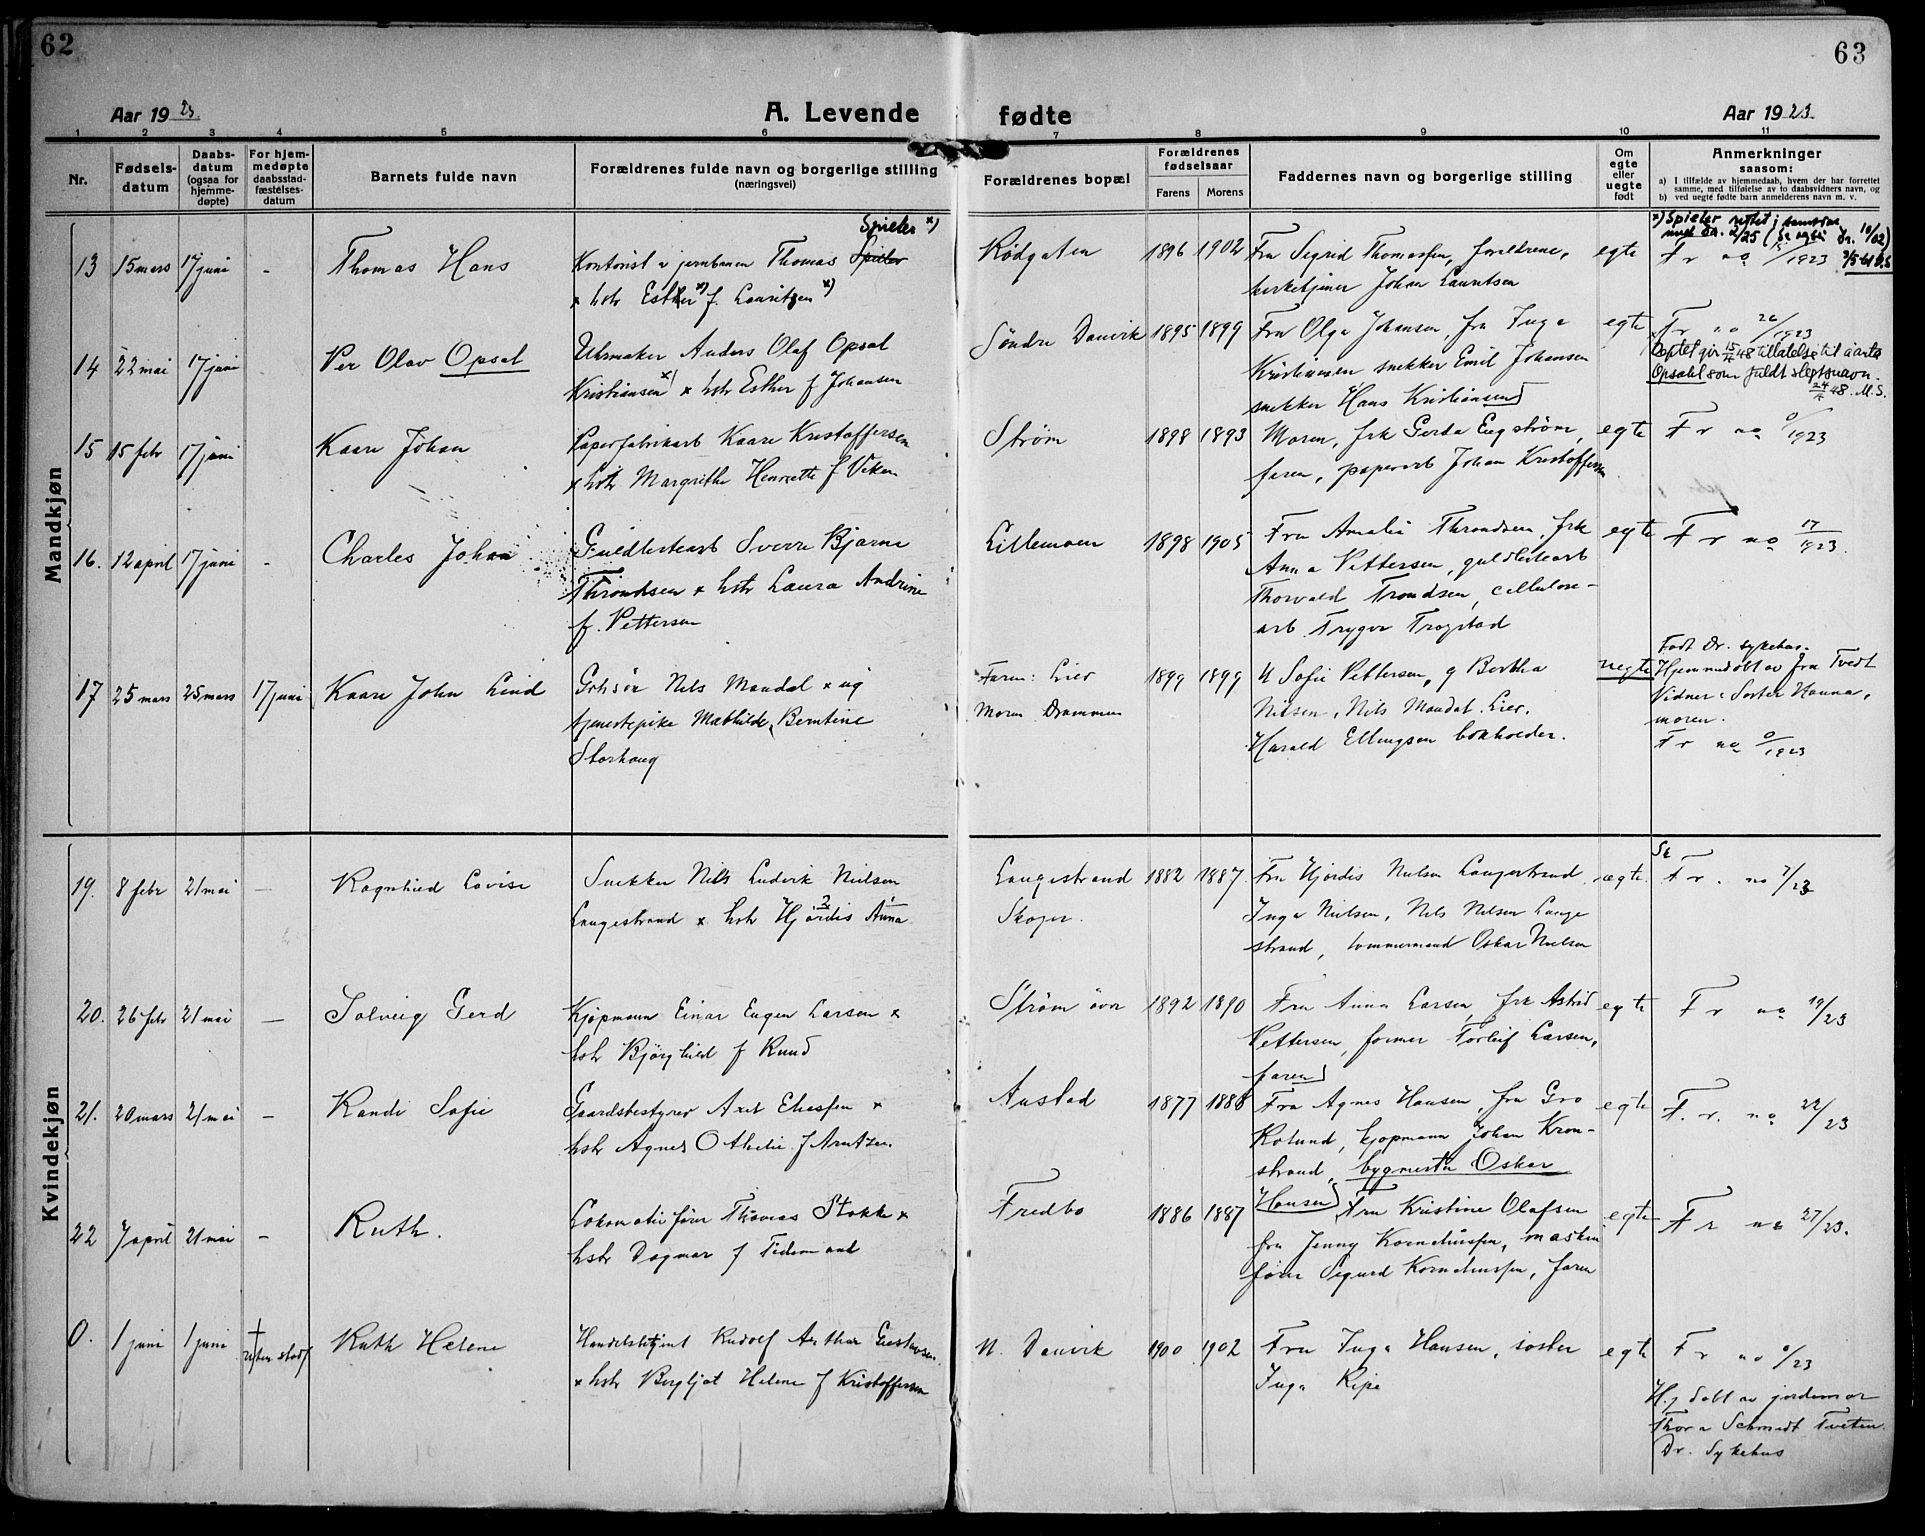 62
63
Aar 1923.
A. Levende fødte
Aar 1923.
1 2 3 4 5 6 7 8 9 10 11
Nr.
Fødsels-
datum
Daabs-
datum
(ogsaa for
hjemme-
døpte)
For hjem-
medøpte
daabsstad-
fæstelses-
datum
Barnets fulde navn
Forældrenes fulde navn og borgerlige stilling
(næringsvei)
Forældrenes bopæl
Forældrenes
fødselsaar
Farens
Morens
Faddernes navn og borgerlige stilling
Om
egte
eller
uegte
født
Anmerkninger
saasom:
a) I tilfælde av hjemmedaab, hvem der har forrettet
samme, med tilføielse av to daabsvidners navn, og
b) ved uegte fødte barn anmelderens navn m. v.
Mandkjøn
13
15 mars
17 juni
-
Thomas Hans
Spieler x)
Kontorist v jernbanen Thomas
x hstr Esther x) f. Lauritzen x)
Rødgaten
1896
1902
Fru Sigrid Thomassen, foreldrene,
kirketjener Johan Lauritsen
egte
x) Spieler rettet i samsvar
med Dr. 2/25
Fr no /1923
14
22 mai
17 juni
Per Olav Opsal
Urmaker Anders Olaf Opsal
Kristiansen x) x hstr Esther f Johansen
Søndre Danvik
1895
1899
Fru Olga Johansen, fru Inga
Kristiansen snekker Emil Johansen
snekker Hans Kristiansen
egte
Fr no 26/1923
Deptet gir 15/4 48 tillatelse til å anta
Opsahl som fuldt slektsnavn.
24/4 48. M.S.
15
15 febr
17 juni
Kaare Johan
Papirfabrikarb Kaare Kristoffersen
x hstr Margrethe Henriette f Viken
Strøm
1898
1893
Moren, frk Gerda Engstrøm,
faren, papirarb Johan Kristoffersen
egte
Fr no 0/1923
16.
12 april
17 juni
-
Charles Johan
Guldlistearb Sverre Bjarne
Throndsen x hstr Laura Andrine
f. Pettersen
Lillemoen
1898
1905
Fru Amalie Throndsen, frk
Anna Pettersen, guldlistearb
Thorvald Trondsen, cellulose-
arb. Trygve Trøgstad
egte
Fr no 17/1923.
17
25 mars
25 mars
17 juni
Kaare John Lind
Grbsøn Nils Mandal x ug
tjenestepike Mathilde Berntine
Storhaug
Faren: Lier
Moren Drammen
1899
1899
U Sofie Pettersen, g Bertha
Nilsen, Nils Mandal. Lier.
Harald Ellingsen bokholder.
uegte
Født Dr. sykehus.
Hjemmedøbt av fru Tvedt
Vidner: Søster Hanna,
moren.
Fr no 0/1923
Kvindekjøn
19.
8 febr
21 mai
-
Ragnhild Lovise
Snekker Nils Ludvik Nielsen
Langestrand x hstr Hjørdis Anna
Langestrand
Skoger.
1882
1887
Fru Hjørdis Nielsen Langestrand
Inga Nielsen, Nils Nilsen Lange
strand, tømmermand Oskar Nielsen
egte
Sk
Fr. no 7/23
20.
26 febr
21 mai
-
Solveig Gerd
Kjøpmann Einar Eugen Larsen x
hstr Bjørghild f Ruud
Strøm øvre
1892
1890
Fru Anna Larsen, frk Astrid
Pettersen, former Torleif Larsen,
faren
egte
Fr no 19/23
21.
20 mars
21 mai
-
Randi Sofie
Gaardsbestyrer Axel Eliassen x
hstr Agnes Othelie f Arntzen.
Austad
1877
1888
Fru Agnes Hansen, fru Gro
Rolund, kjøpmann Johan Kron-
strand, bygmester Oskar
Hansen
egte
F. r. no 22/23
22
7 april
21 mai
-
Ruth.
Lokomotivfører Thomas Stokke x
hstr Dagmar f Tidemand
Fredbo
1886
1887
Fru Kristine Olafsen
fru Jenny Korneliussen, maskin
fører Sigurd Korneliussen, faren
egte
Fr no 27/23.
0.
1 juni
1 juni
†
uten stadf
Ruth Helene
Handelsbetjent Rudolf Arthur Gustavsen
x hstr Bergljot Helene f Kristoffersen
N. Danvik
1900
1902
Fru Inga Hansen, søster
Inga Ripe
egte
Fr no 0/23
Hj døbt av jordemor
Thora Schmidt Tveten.
Dr. Sykehus